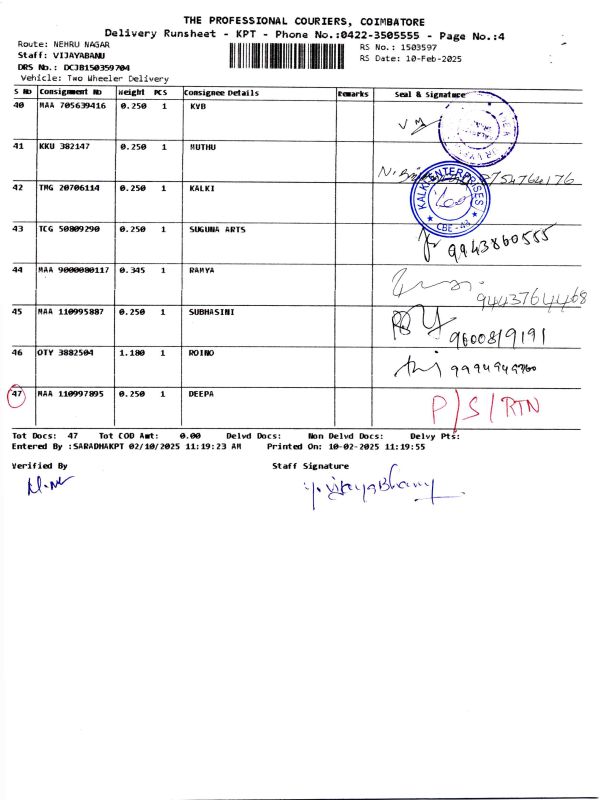 THE PROFESSIONAL COURIERS, COIMBATORE
Delivery Runsheet - KPT - Phone No.:0422-3505555 - Page No.:4
Route: NEHRU NAGAR
Staff: VIJAYABANU
DRS No.: DCJB150359704
Vehicle: Two Wheeler Delivery
RS No.: 1503597
RS Date: 10-Feb-2025
S No Consignment No Weight PCS Consignee Details Remarks Seal & Signature
40 MAA 705639416 0.250 1 KVB
41 KKU 382147 0.250 1 MUTHU 8754764176
42 TMG 20706114 0.250 1 KALKI KALKI ENTERPRISES CBE-43
43 TCG 50809290 0.250 1 SUGUNA ARTS 9943860555
44 MAA 9000080117 0.345 1 RAMYA 9443764468
45 MAA 110995887 0.250 1 SUBHASINI 9600819191
46 OTY 3882504 1.180 1 ROINO
47 MAA 110997895 0.250 1 DEEPA P/S/RTN
Tot Docs: 47 Tot COD Amt: 0.00 Delvd Docs: Non Delvd Docs: Delvy Pts:
Entered By :SARADHAKPT 02/10/2025 11:19:23 AM Printed On: 10-02-2025 11:19:55
Verified By Staff Signature